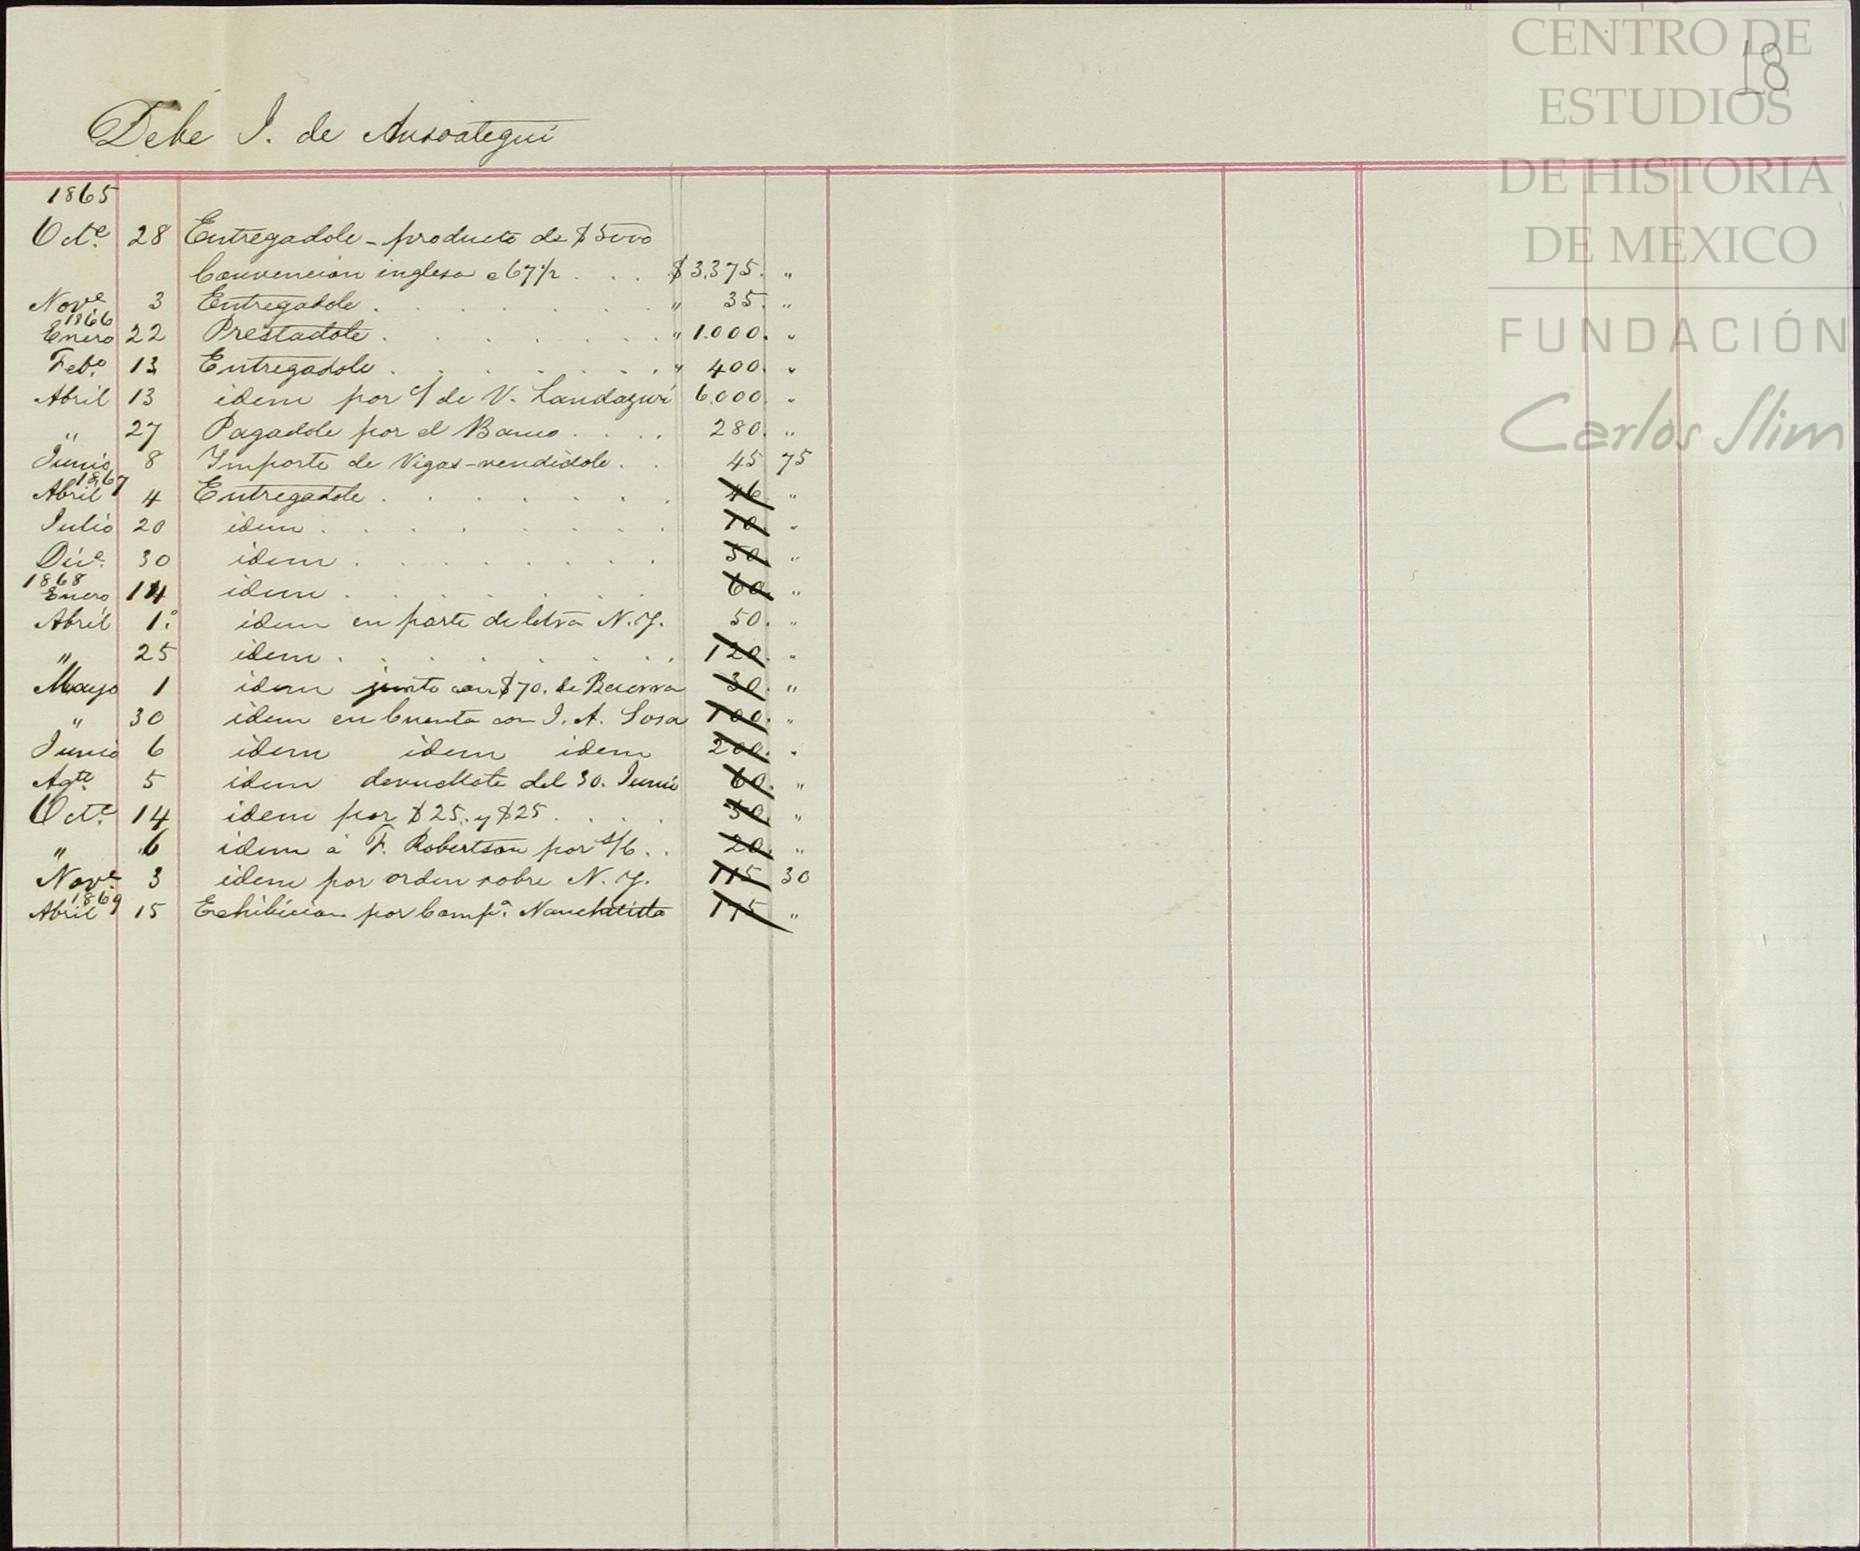 CENTRO DE
ESTUDIOS
DE HISTORIA
DE MEXICO
FUNDACIÓN
Carlos Slim
18
Debe I. de Ansoategui
1865
Octe. 28 Entregadole - producto de $5000
Convencion inglesa a 67½ . . . $ 3,375. "
Nove. 3 Entregadole . . . . . . . . " 35. "
1866
Enero 22 Prestadole . . . . . . . . " 1.000. "
Febo. 13 Entregadole . . . . . . . " 400. "
Abril 13 idem por c/ de V. Landazuri 6.000. "
" 27 Pagadole por el Banco . . . . 280. "
Junio 8 Importe de Vigas - vendidole . . 45 75
1867
Abril 4 Entregadole . . . . . . . 46. "
Julio 20 idem . . . . . . . . 70. "
Dice. 30 idem . . . . . . . . 50. "
1868
Enero 14 idem . . . . . . . . 60. "
Abril 1º. idem en parte de letra N.Y. 50. "
" 25 idem . . . . . . . . 120. "
Mayo 1 idem junto con $70. de 30. "
" 30 idem en Cuenta con J. A. Sosa 100. "
Junio 6 idem idem idem 200. "
Agto. 5 idem del 30. Junio 60. "
Octe. 14 idem por $25. y $25 . . . . 50. "
" 6 idem á F. Robertson por s/c . . 20. "
Nove. 3 idem por orden sobre N. Y. 115 30
1869
Abril 15 Exhibicion por Compª. Nanchititla 175 "